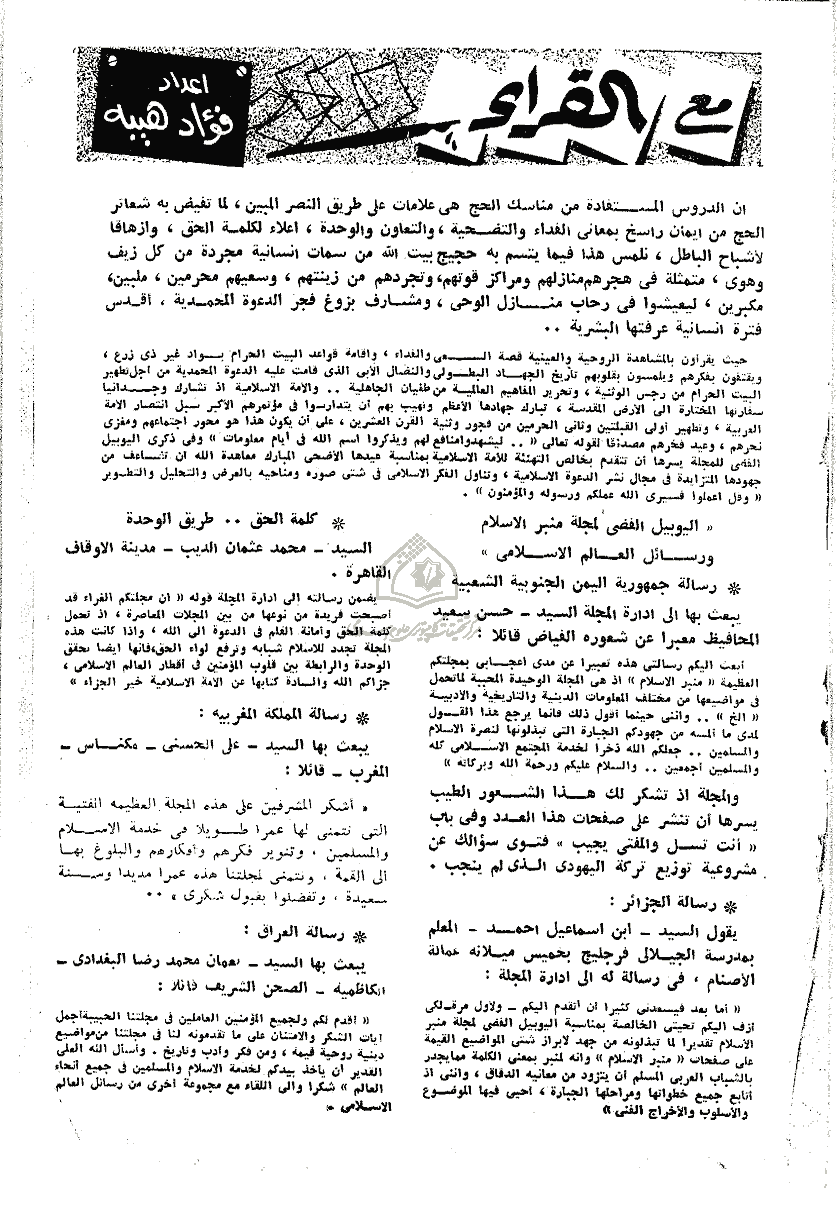 مع القراء
اعداد
فؤاد هيبه
ان الدروس المستفادة من مناسك الحج هى علامات على طريق النصر المبين ، لما تفيض به شعائر
الحج من ايمان راسخ بمعانى الفداء والتضحية ، والتعاون والوحدة ، اعلاء لكلمة الحق ، وازهاقا
لأشباح الباطل ، نلمس هذا فيما يتسم به حجيج بيت الله من سمات انسانية مجردة من كل زيف
وهوى ، متمثلة فى هجرهم منازلهم ومراكز قوتهم، وتجردهم من زينتهم ، وسعيهم محرمين ، ملبين،
مكبرين ، ليعيشوا فى رحاب منازل الوحى ، ومشارف بزوغ فجر الدعوة المحمدية ، أقدس
فترة انسانية عرفتها البشرية ..
حيث يقرأون بالمشاهدة الروحية والعينية قصة السعى والفداء ، واقامة قواعد البيت الحرام بواد غير ذى زرع ،
ويقتفون بفكرهم ويلمسون بقلوبهم تأريخ الجهاد البطولى والنضال الأبى الذى قامت عليه الدعوة المحمدية من اجل تطهير
البيت الحرام من رجس الوثنية ، وتحرير المفاهيم العالمية من طغيان الجاهلية .. والأمة الاسلامية اذ تشارك وجدانيا
سفارتها المختارة الى الأرض المقدسة ، تبارك جهادها الأعظم وتهيب بهم أن يتدارسوا فى مؤتمرهم الأكبر سبل انتصار الأمة
العربية ، وتطهير أولى القبلتين وثانى الحرمين من فجور وثنية القرن العشرين ، على أن يكون هذا هو محور اجتماعهم ومغزى
نحرهم ، وعيد فخرهم مصدقا لقوله تعالى « .. ليشهدوا منافع لهم ويذكروا اسم الله فى أيام معلومات » وفى ذكرى اليوبيل
الفضى للمجلة يسرها أن تتقدم بخالص التهنئة للأمة الاسلامية بمناسبة عيدها الأضحى المبارك معاهدة الله ان تضاعف من
جهودها المتزايدة فى مجال نشر الدعوة الاسلامية ، وتناول الفكر الاسلامى فى شتى صوره ومناحيه بالعرض والتحليل والتطوير
« وقل اعملوا فسيرى الله عملكم ورسوله والمؤمنون » .
« اليوبيل الفضى لمجلة منبر الاسلام
ورسائل العالم الاسلامى »
* رسالة جمهورية اليمن الجنوبية الشعبية
يبعث بها الى ادارة المجلة السيد ــ حسن سعيد
المحافيظ معبرا عن شعوره الفياض قائلا :
أبعث اليكم رسالتى هذه تعبيرا عن مدى اعجابى بمجلتكم
العظيمة « منبر الاسلام » اذ هى المجلة الوحيدة المحببة لما تحمل
فى مواضيعها من مختلف المعلومات الدينية والتاريخية والأدبية
« الخ » .. واننى حينما أقول ذلك فانما يرجع هذا القول
لمدى ما ألمسه من جهودكم الجبارة التى تبذلونها لنصرة الاسلام
والمسلمين .. جعلكم الله ذخرا لخدمة المجتمع الاسلامى كله
والمسلمين أجمعين .. والسلام عليكم ورحمة الله وبركاته »
والمجلة اذ تشكر لك هذا الشعور الطيب
يسرها أن تنشر على صفحات هذا العدد وفى باب
« أنت تسل والمفتى يجيب » فتوى سؤالك عن
مشروعية توزيع تركة اليهودى الذى لم ينجب .
* رسالة الجزائر :
يقول السيد ــ ابن اسماعيل احمد ــ المعلم
بمدرسة الجيلالى فرجليج بخميس ميلانه عمالة
الأصنام ، فى رسالة له الى ادارة المجلة :
« أما بعد فيسعدنى كثيرا أن أتقدم اليكم ــ ولأول مرة ــ لكى
أزف اليكم تحيتى الخالصة بمناسبة اليوبيل الفضى لمجلة منبر
الاسلام تقديرا لما تبذلونه من جهد لابراز شتى المواضيع القيمة
على صفحات « منبر الاسلام » وانه لمنبر بمعنى الكلمة مما يجدر
بالشباب العربى المسلم أن يتزود من معانيه الدفاق ، واننى اذ
أتابع جميع خطواتها ومراحلها الجبارة ، أحيى فيها الموضوع
والأسلوب والاخراج الفنى »
* كلمة الحق .. طريق الوحدة
السيد ــ محمد عثمان الديب ــ مدينة الأوقاف
القاهرة .
يضمن رسالته الى ادارة المجلة قوله « ان مجلتكم الغراء قد
أصبحت فريدة من نوعها من بين المجلات المعاصرة ، اذ تحمل
كلمة الحق وأمانة العلم فى الدعوة الى الله ، واذا كانت هذه
المجلة تجدد للاسلام شبابه وترفع لواء الحق، فانها ايضا تحقق
الوحدة والرابطة بين قلوب المؤمنين فى أقطار العالم الاسلامى ،
جزاكم الله والسادة كتابها عن الأمة الاسلامية خير الجزاء »
* رسالة المملكة المغربيه :
يبعث بها السيد ــ على الحسنى ــ مكناس ــ
المغرب ــ قائلا :
« أشكر المشرفين على هذه المجلة العظيمه الفتية
التى نتمنى لها عمرا طويلا فى خدمة الاسلام
والمسلمين ، وتنوير فكرهم وأفكارهم والبلوغ بها
الى القمة ، ونتمنى لمجلتنا هذه عمرا مديدا وسنة
سعيدة ، وتفضلوا بقبول شكرى » ..
* رسالة العراق :
يبعث بها السيد ــ نعمان محمد رضا البغدادى ــ
الكاظمية ــ الصحن الشريف قائلا :
« أقدم لكم ولجميع المؤمنين العاملين فى مجلتنا الحبيبة أجمل
آيات الشكر والامتنان على ما تقدمونه لنا فى مجلتنا من مواضيع
دينية روحية قيمة ، ومن فكر وأدب وتاريخ . وأسأل الله العلى
القدير أن يأخذ بيدكم لخدمة الاسلام والمسلمين فى جميع أنحاء
العالم » شكرا والى اللقاء مع مجموعة اخرى من رسائل العالم
الاسلامى .